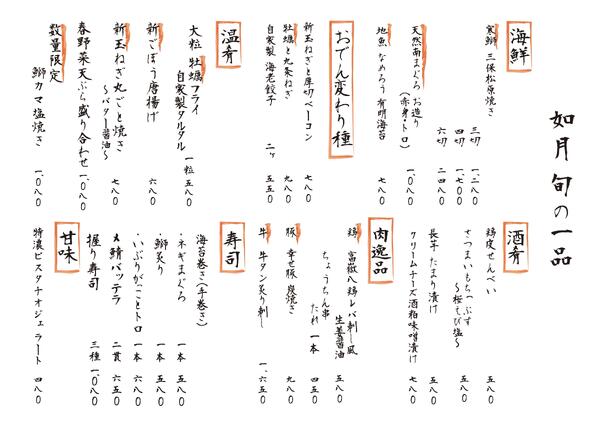 如月旬の一品
海鮮
寒鰤 三保松原焼き
三切 一、二八〇
四切 一、七〇〇
六切 二四八〇
天然南まぐろ お造り
(赤身・トロ) 一、〇八〇
地魚 なめろう 有明海苔 七八〇
おでん変わり種
新玉ねぎと厚切ベーコン 七八〇
牡蠣と九条ねぎ 九八〇
自家製 海老餃子 二ヶ 五五〇
温肴
大粒 牡蠣フライ
自家製タルタル 一粒 五八〇
新ごぼう唐揚げ 六八〇
新玉ねぎ丸ごと焼き
〜バター醤油〜 七八〇
春野菜天ぷら盛り合わせ 一、〇八〇
数量限定
鰤カマ塩焼き 一、〇八〇
酒肴
鶏皮せんべい 五八〇
さつまいもちっぷす
〜桜えび塩〜 五八〇
長芋 たまり漬け 五八〇
クリームチーズ酒粕味噌漬け 七八〇
肉逸品
鶏 富嶽八鶏レバ刺し風
生姜醤油 五八〇
ちょうちん串
たれ 一本 四五〇
豚 幸せ豚 炭焼き 九八〇
牛 牛タン炙り刺し 一、六五〇
寿司
海苔巻き(手巻き)
・ネギまぐろ 一本 五八〇
・鰤炙り 一本 五八〇
・いぶりがっことトロ 一本 六八〇
〆鯖バッテラ 二貫 六五〇
握り寿司 三種 一、〇八〇
甘味
特濃ピスタチオジェラート 四八〇